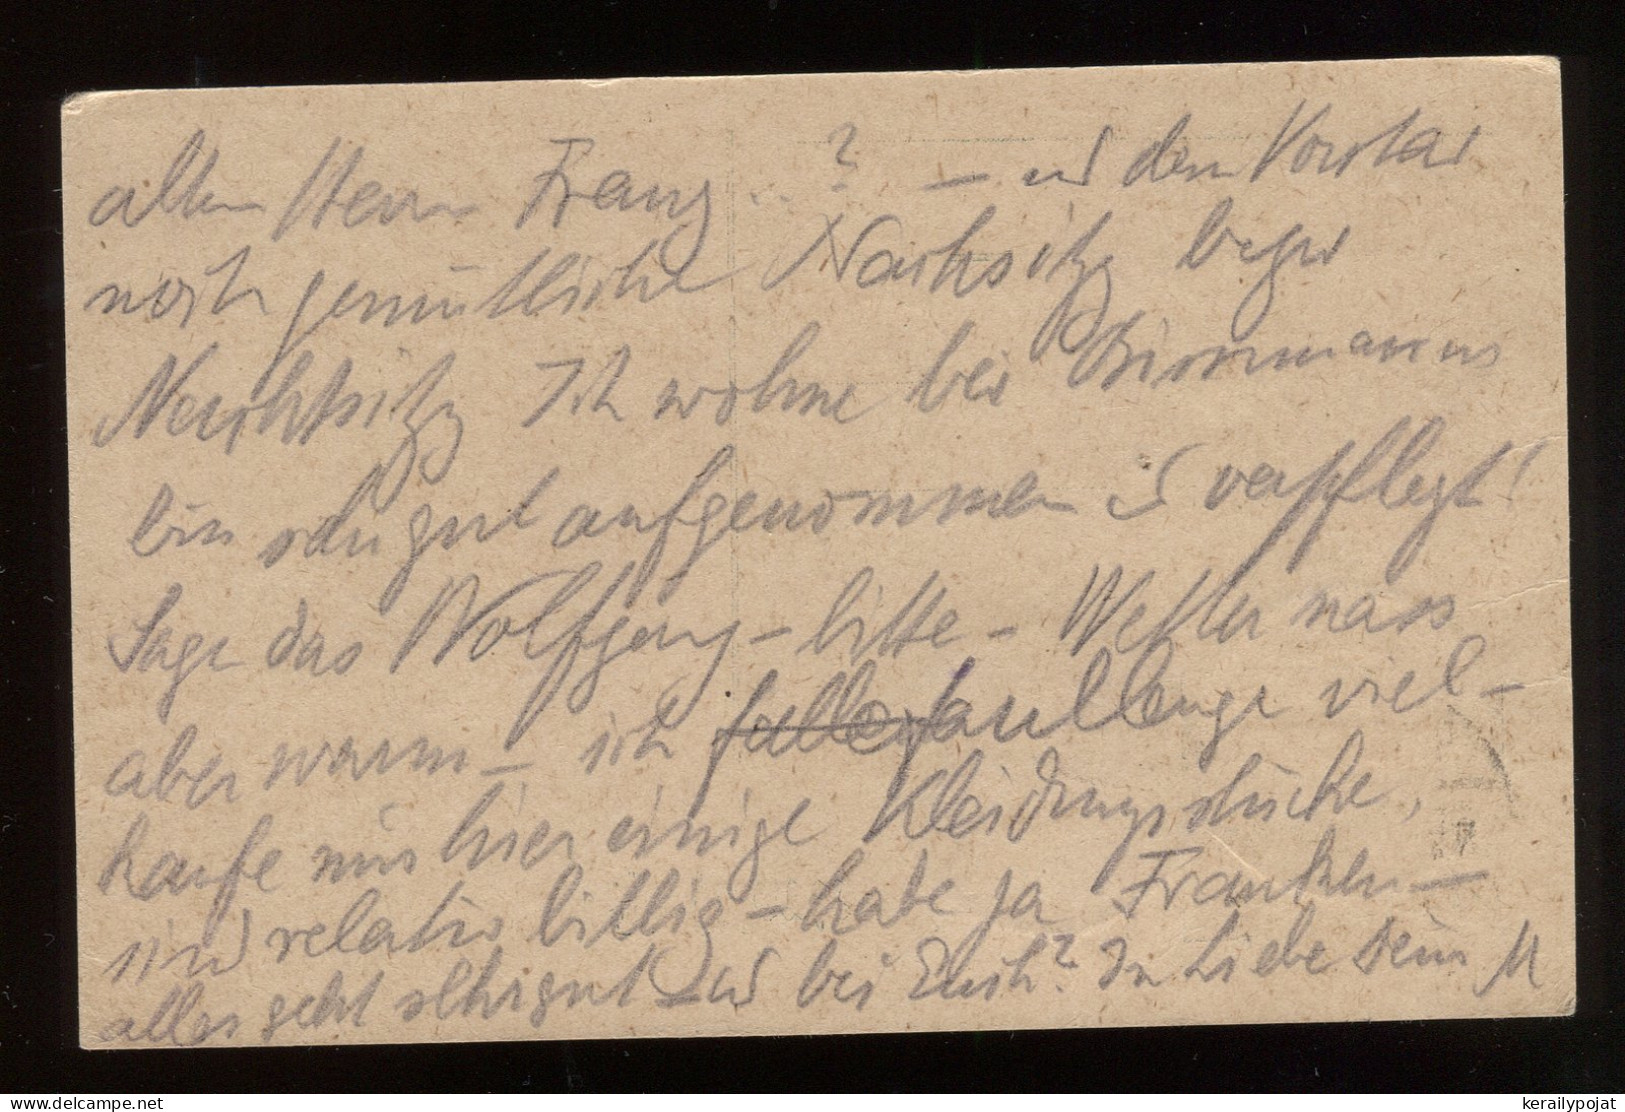 alten Herrn Franz ..? – und dem Vorstad
noch gemütliche Nachsitz
Nachtsitz Ich wohne bei
bin sehr gut aufgenommen u verpflegt!
Sage das Wolfgang – bitte – Wetter nass
aber warm – ich faullenze viel –
kaufe mir hier einige Kleidungsstücke,
sind relativ billig – habe ja Franken –
alles geht sehr gut – und bei Euch? In Liebe Dein M
kerailypojat